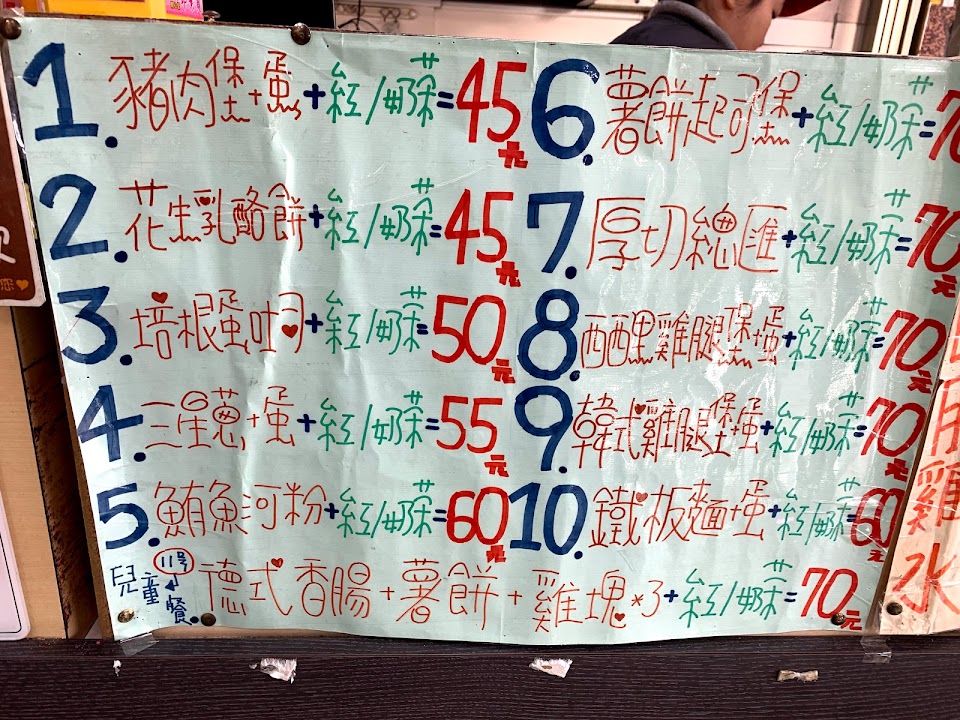 1. 豬肉堡+蛋+紅/奶茶=45元
2. 花生乳酪餅+紅/奶茶=45元
3. 培根蛋吐司+紅/奶茶=50元
4. 三星蔥+蛋+紅/奶茶=55元
5. 鮪魚河粉+紅/奶茶=60元
6. 薯餅起司堡+紅/奶茶=7
7. 厚切總匯+紅/奶茶=70元
8. 西西里雞腿堡蛋+紅/奶茶=70元
9. 韓式雞腿堡蛋+紅/奶茶=70元
10. 鐵板麵+蛋+紅/奶茶=60元
11號
兒童餐 德式香腸+薯餅+雞塊*3+紅/奶茶=70元
雞
水